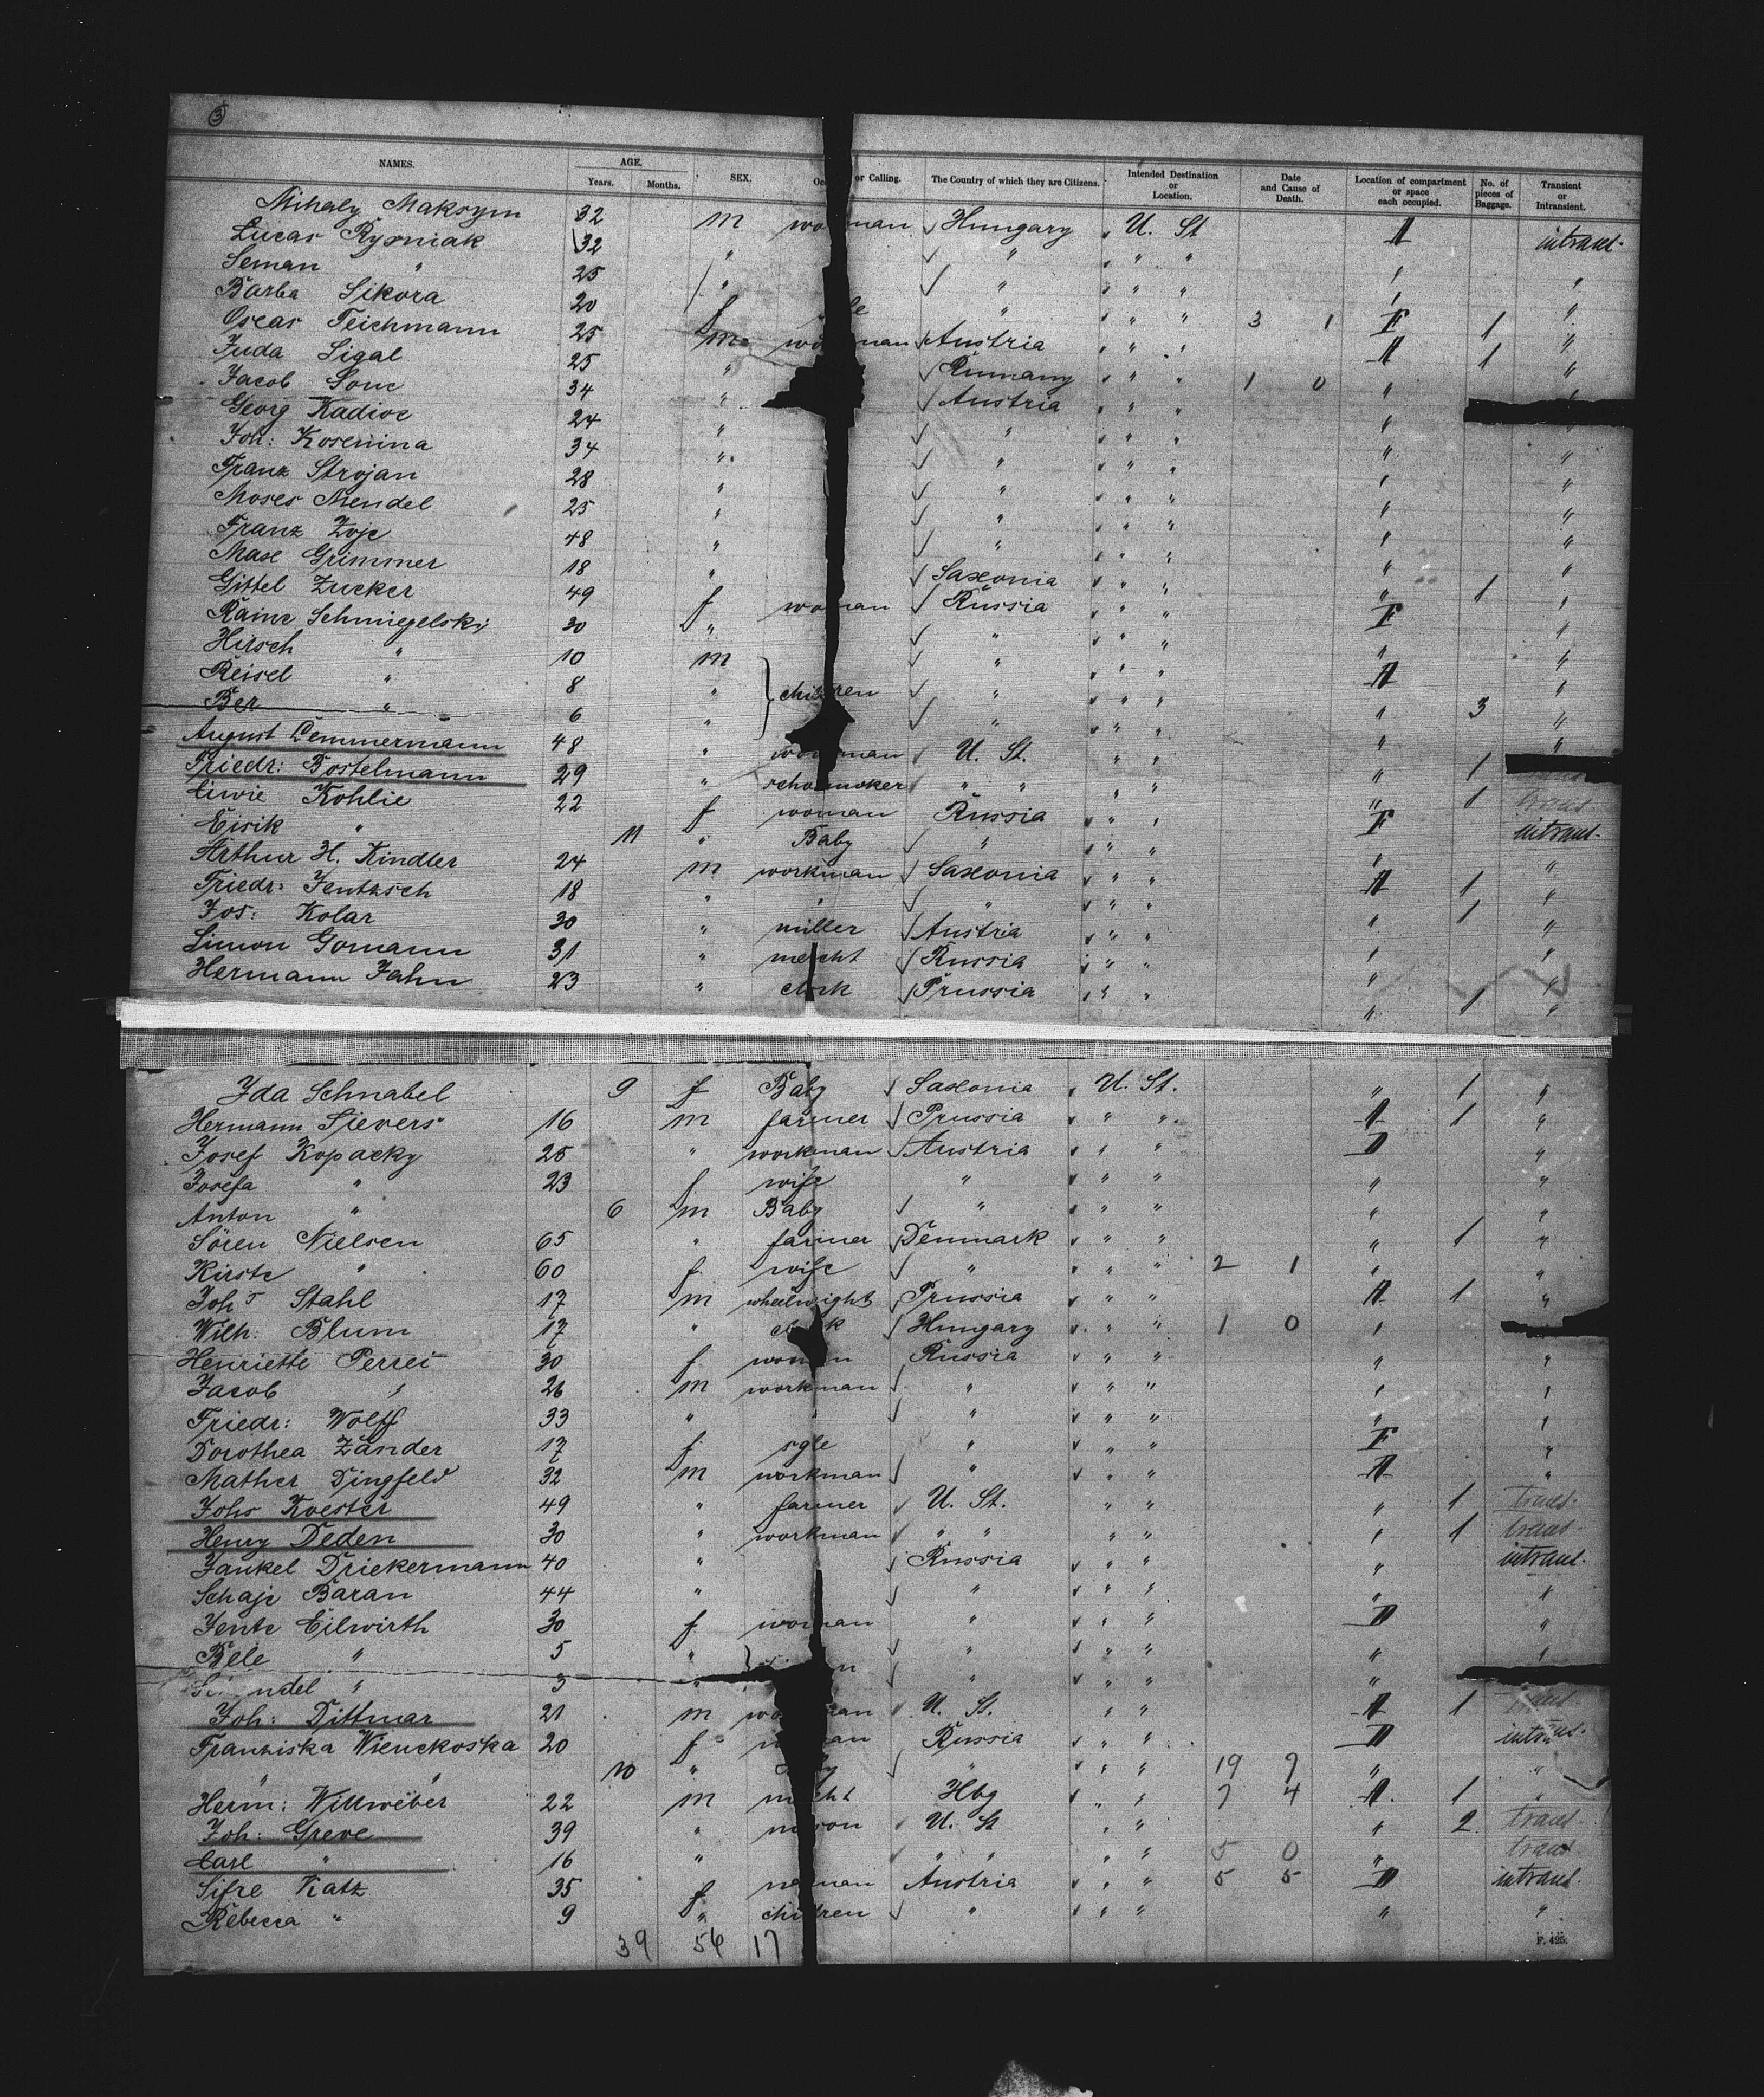 3
NAMES. AGE. SEX. or Calling. The Country of which they are Citizens. Intended Destination or Location. Date and Cause of Death. Location of compartment or space each occupied. No. of pieces of Baggage. Transient or Intransient.
Years. Months.
Mihaly Maksym 32 m workman Hungary U. St II intrans.
Lucas Rysniak 32 " " " " " "
Seman " 25 " " " " " "
Barba Sikora 20 f " " " 3 1 F 1 "
Oscar Teichmann 25 m workman Austria " " II 1 "
Juda Sigal 25 " Rumany " " 1 0 "
Jacob Sone 34 " Austria " " "
Georg Kadioc 24 " " " " " "
Joh: Kosenina 34 " " " " " "
Franz Strojan 28 " " " " " "
Moses Mendel 25 " " " " " "
Franz Zoje 48 " " " " " "
Max Grimmer 18 " Saxonia " " " 1 "
Gittel Zucker 49 f woman Russia " " F "
Raine Schmiegelski 30 " " " " " "
Hirsch " 10 m " " " II "
Reisel " 8 " children " " " " 3 "
Ber " 6 " " " " " "
August Lemmermann 48 " workman U. St. " " " 1
Friedr: Bostelmann 29 " schomoker " " " " " 1 trans.
Liwie Kohlie 22 f woman Russia " " F intrans.
Eisik " 11 " Baby " " " " "
Arthur H. Kindler 24 m workman Saxonia " " II 1 "
Friedr: Jentzsch 18 " " " " " " 1 "
Jos: Kolar 30 " miller Austria " " " "
Simon Gomann 31 " mercht Russia " " " "
Hermann Jahn 23 " clerk Prussia " " " 1 "
Ida Schnabel 9 f Baby Saxonia U. St. " 1 "
Hermann Sievers 16 m farmer Prussia " " II 1 "
Josef Kopacky 25 " workman Austria " " "
Josefa " 23 f wife " " " " "
Anton " 6 m Baby " " " " "
Sören Nielsen 65 " farmer Denmark " " " 1 "
Kirste " 60 f wife " " " 2 1 " "
Joh Stahl 17 m wheelwright Prussia " " II 1 "
Wilh: Blum 17 " clerk Hungary " " 1 0 "
Henriette Perrei 30 f woman Russia " " " "
Jacob " 26 m workman " " " " "
Friedr: Wolff 33 " " " " " " "
Dorothea Zander 17 f sgle " " " F "
Mather Dingfeld 32 m workman " " " II "
Johs Koester 49 " farmer U. St. " " " 1 trans.
Henry Deden 30 " workman " " " " " 1 trans.
Jankel Driekermann 40 " Russia " " " intrans.
Schaje Baran 44 " " " " " "
Jente Eilwirth 30 f woman " " " "
Bele " 5 " " " " " "
" 3 " " " " "
Joh: Dittmar 21 m workman U. St. " " II 1 trans.
Franziska Wienckoska 20 f woman Russia " " intrans.
" " 10 " " " " 19 7 " "
Herm: Willweber 22 m mercht Hbg " " 7 4 II 1 "
Joh: Greve 39 " mason U. St " " " 2 trans.
Carl " 16 " " " " " 5 0 " trans
Sifre Katz 35 f woman Austria " " 5 5 intrans.
Rebecca " 9 " children " " " " "
39 56 17
F. 425.